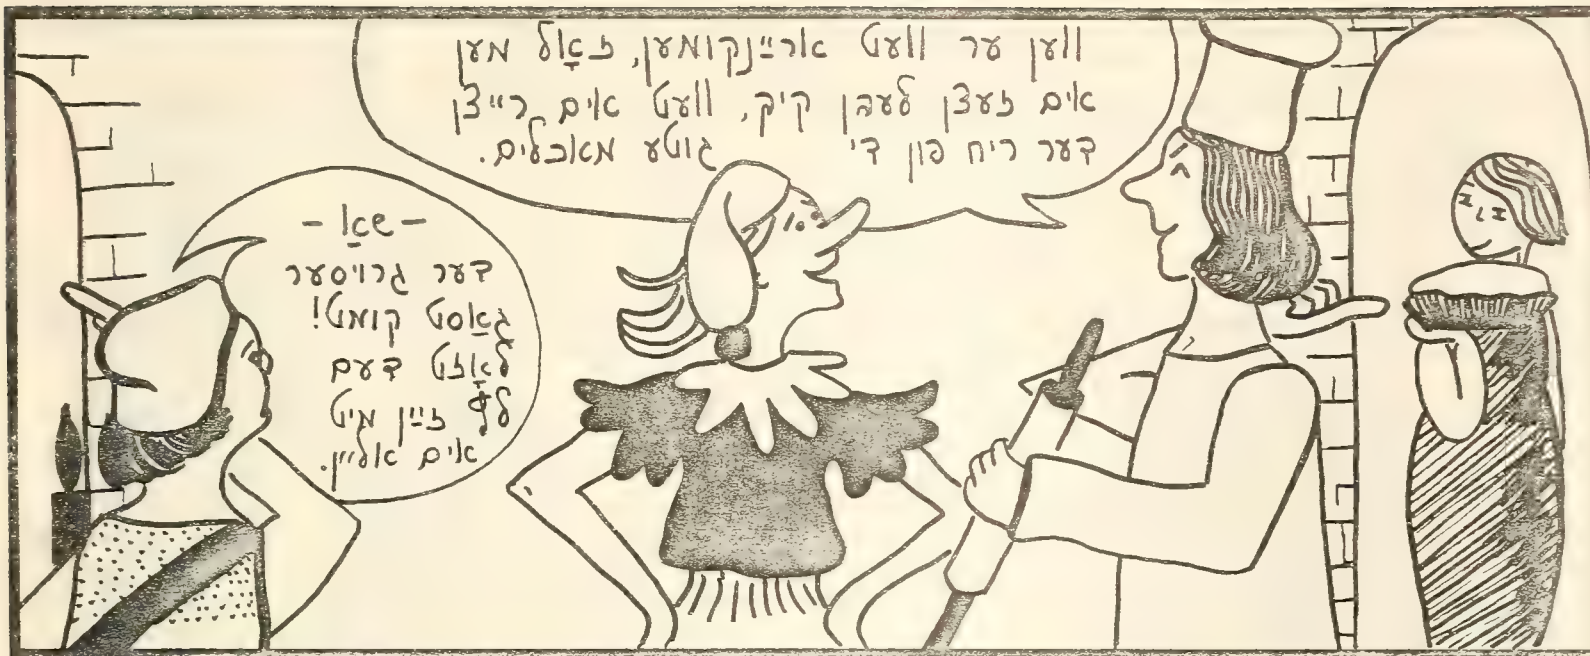 ווען ער וועט ארײַנקומען, זאָל מען
אים זעצן לעבן קיך, וועט אים רייצן
דער ריח פון די גוטע מאכלים.
– שאַ –
דער גרויסער
גאַסט קומט!
לאָזט דעם
לץ זײַן מיט
אים אליין.